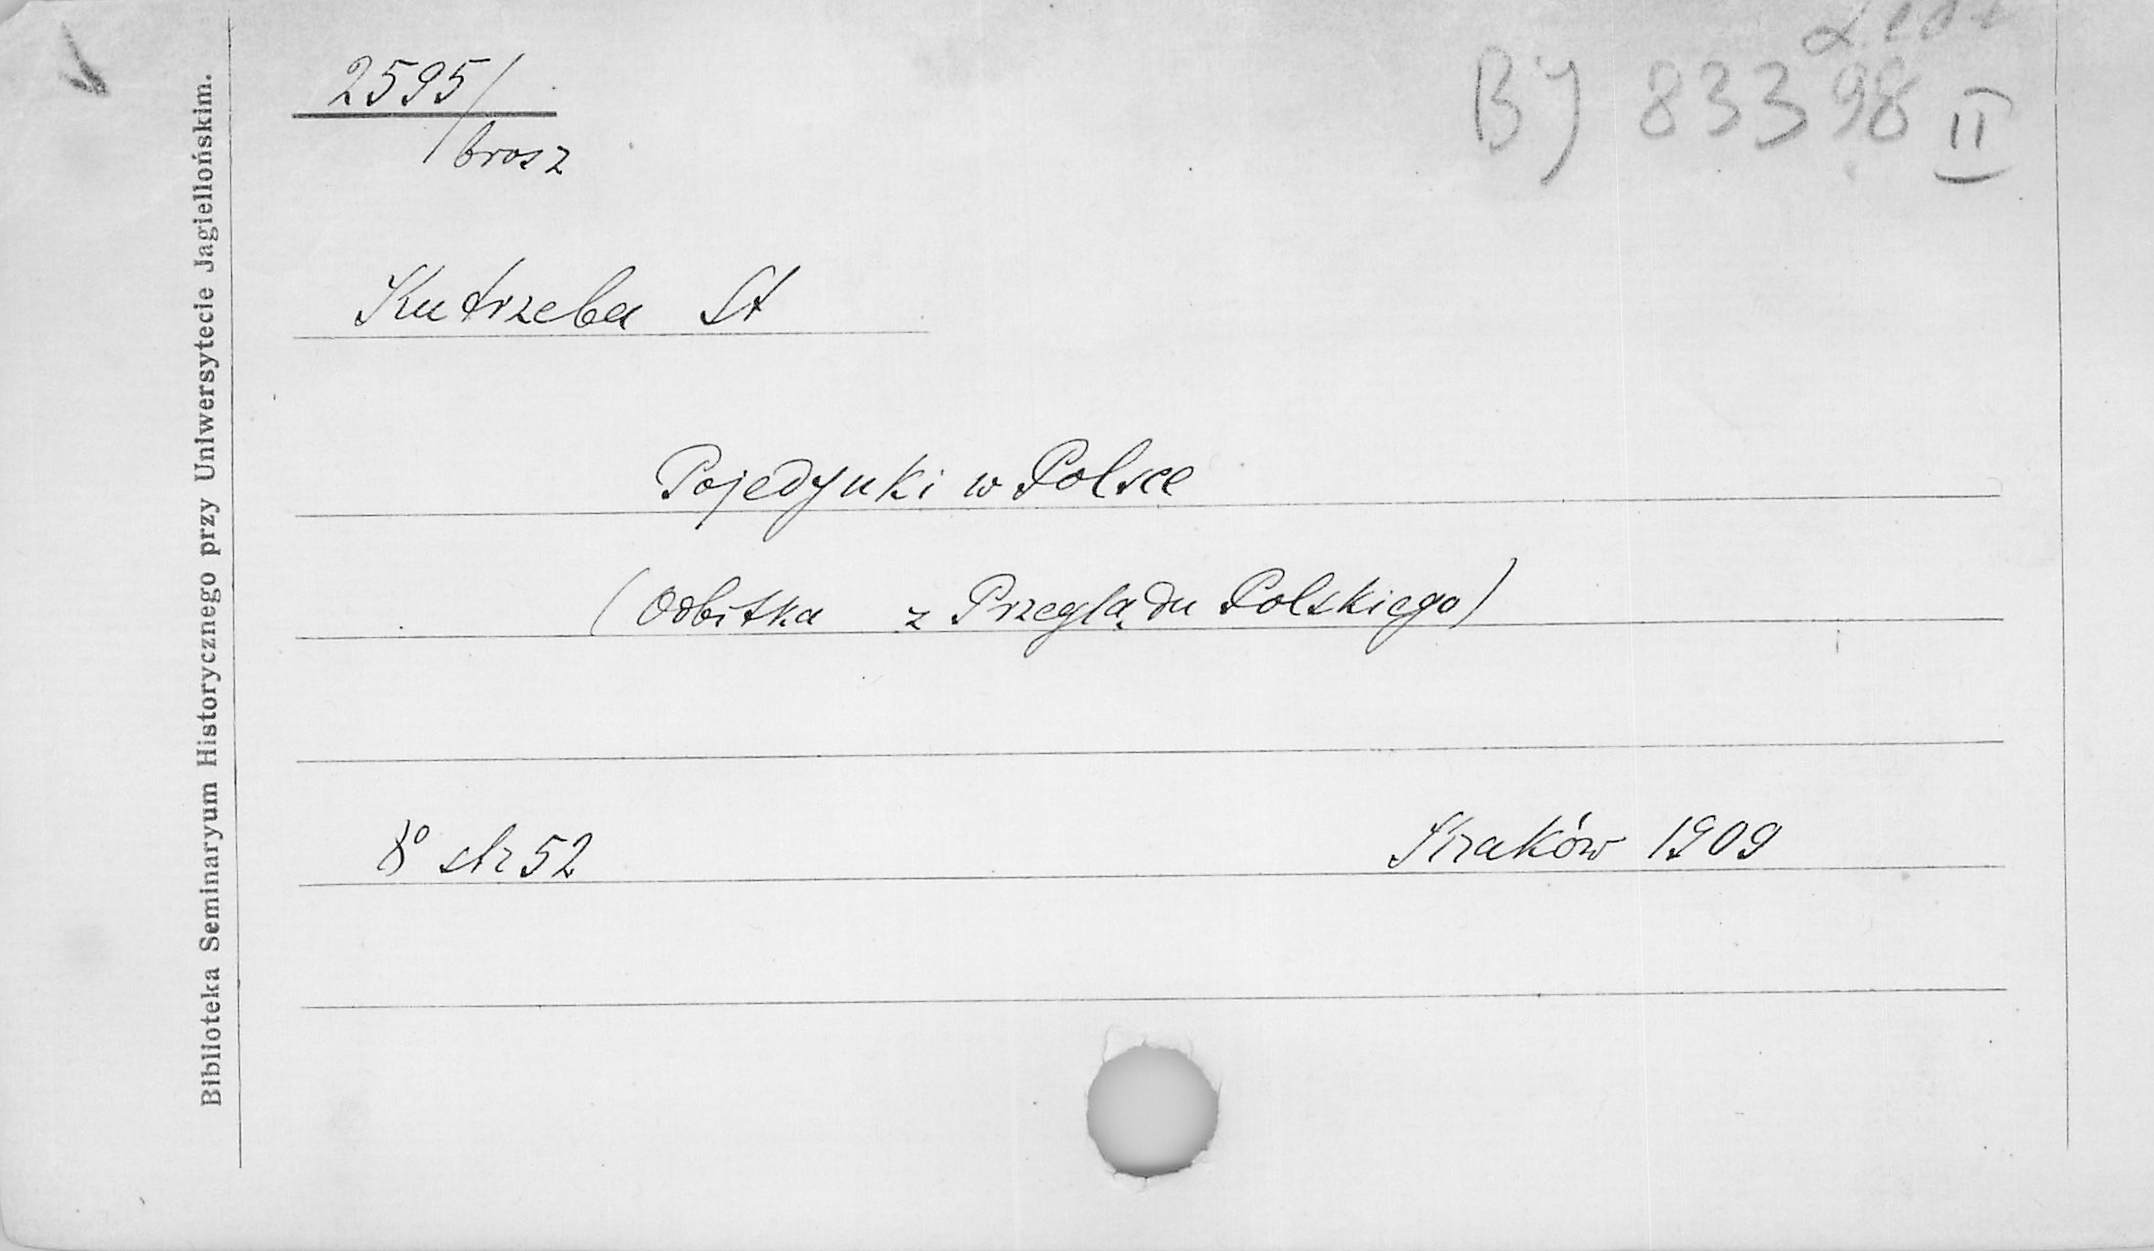 2595/
brosz
BJ 83398 II
Kutrzeba St
Pojedynki w Polsce
(Odbitka z Przeglądu Polskiego)
8° str 52 Kraków 1909
Biblioteka Seminaryum Historycznego przy Uniwersytecie Jagiellońskim.